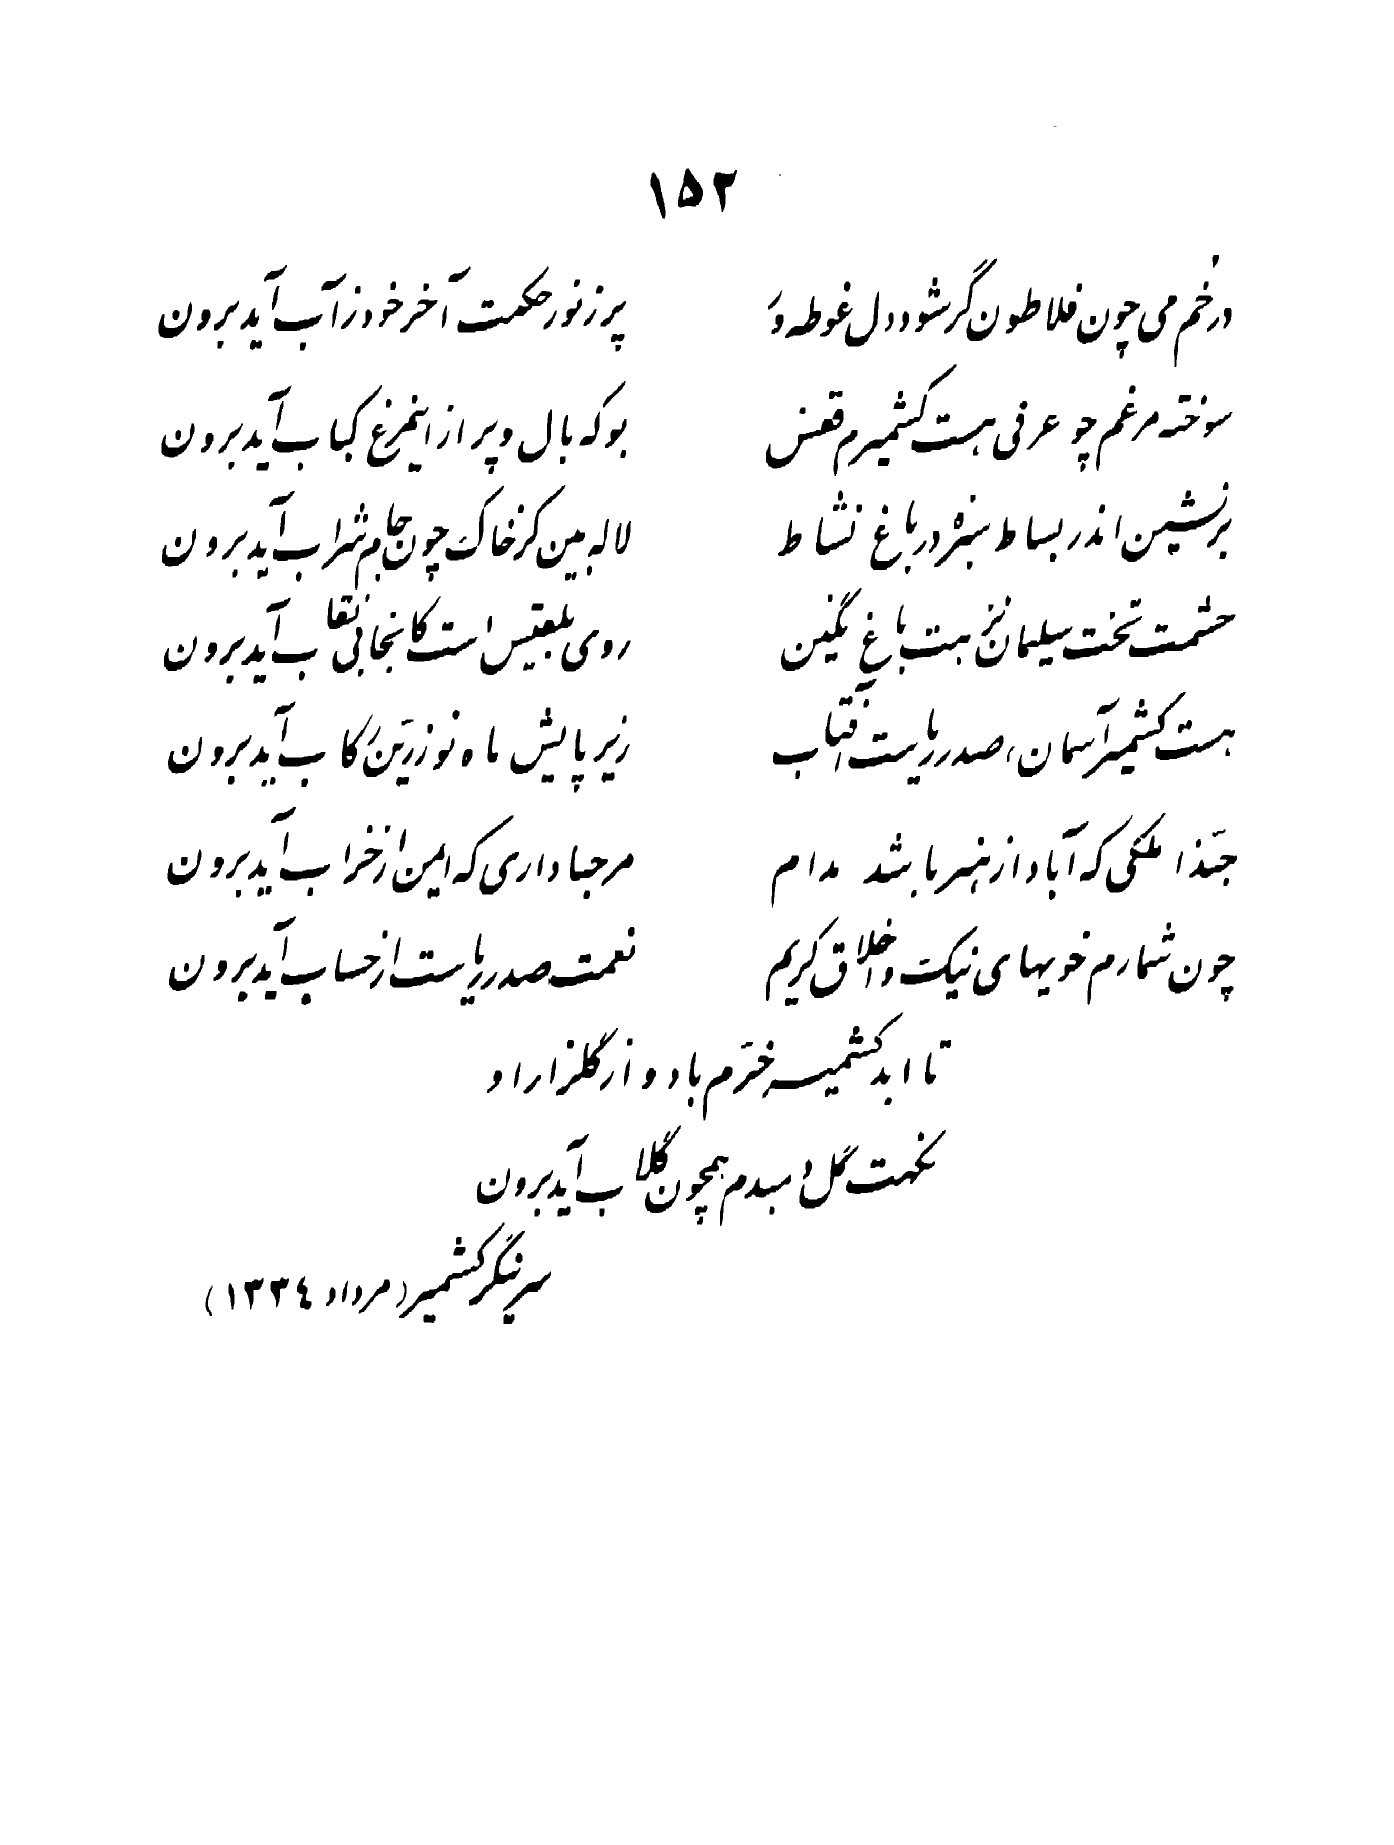 ۱۵۲
در خُم می چون فلاطون گر شود دل غوطه‌ور پر ز نور حکمت آخر خود ز آب آید برون
سوخته مرغم چو عرفی هست کشمیرم قفس بو که بال و پر از اینمرغ کباب آید برون
بر نشین اندر بساط سبزه در باغ نشاط لاله بین کز خاک چون جام شراب آید برون
حشمت تخت سلیمان نز هست باغ نگین روی بلقیس است کانجا بی نقاب آید برون
هست کشمیر آسمان، صدر ریاست آفتاب زیر پایش ماه نو زرّین رکاب آید برون
حبّذا ملکی که آباد از هنر باشد مدام مرحبا داری که ایمن از خراب آید برون
چون شمارم خویهای نیک و اخلاق کریم نعمت صدر ریاست از حساب آید برون
تا ابد کشمیر خرّم باد و از گلزار او
نکهت گل دمبدم همچون گلاب آید برون
سرینگر کشمیر (مرداد ۱۳۳٤)